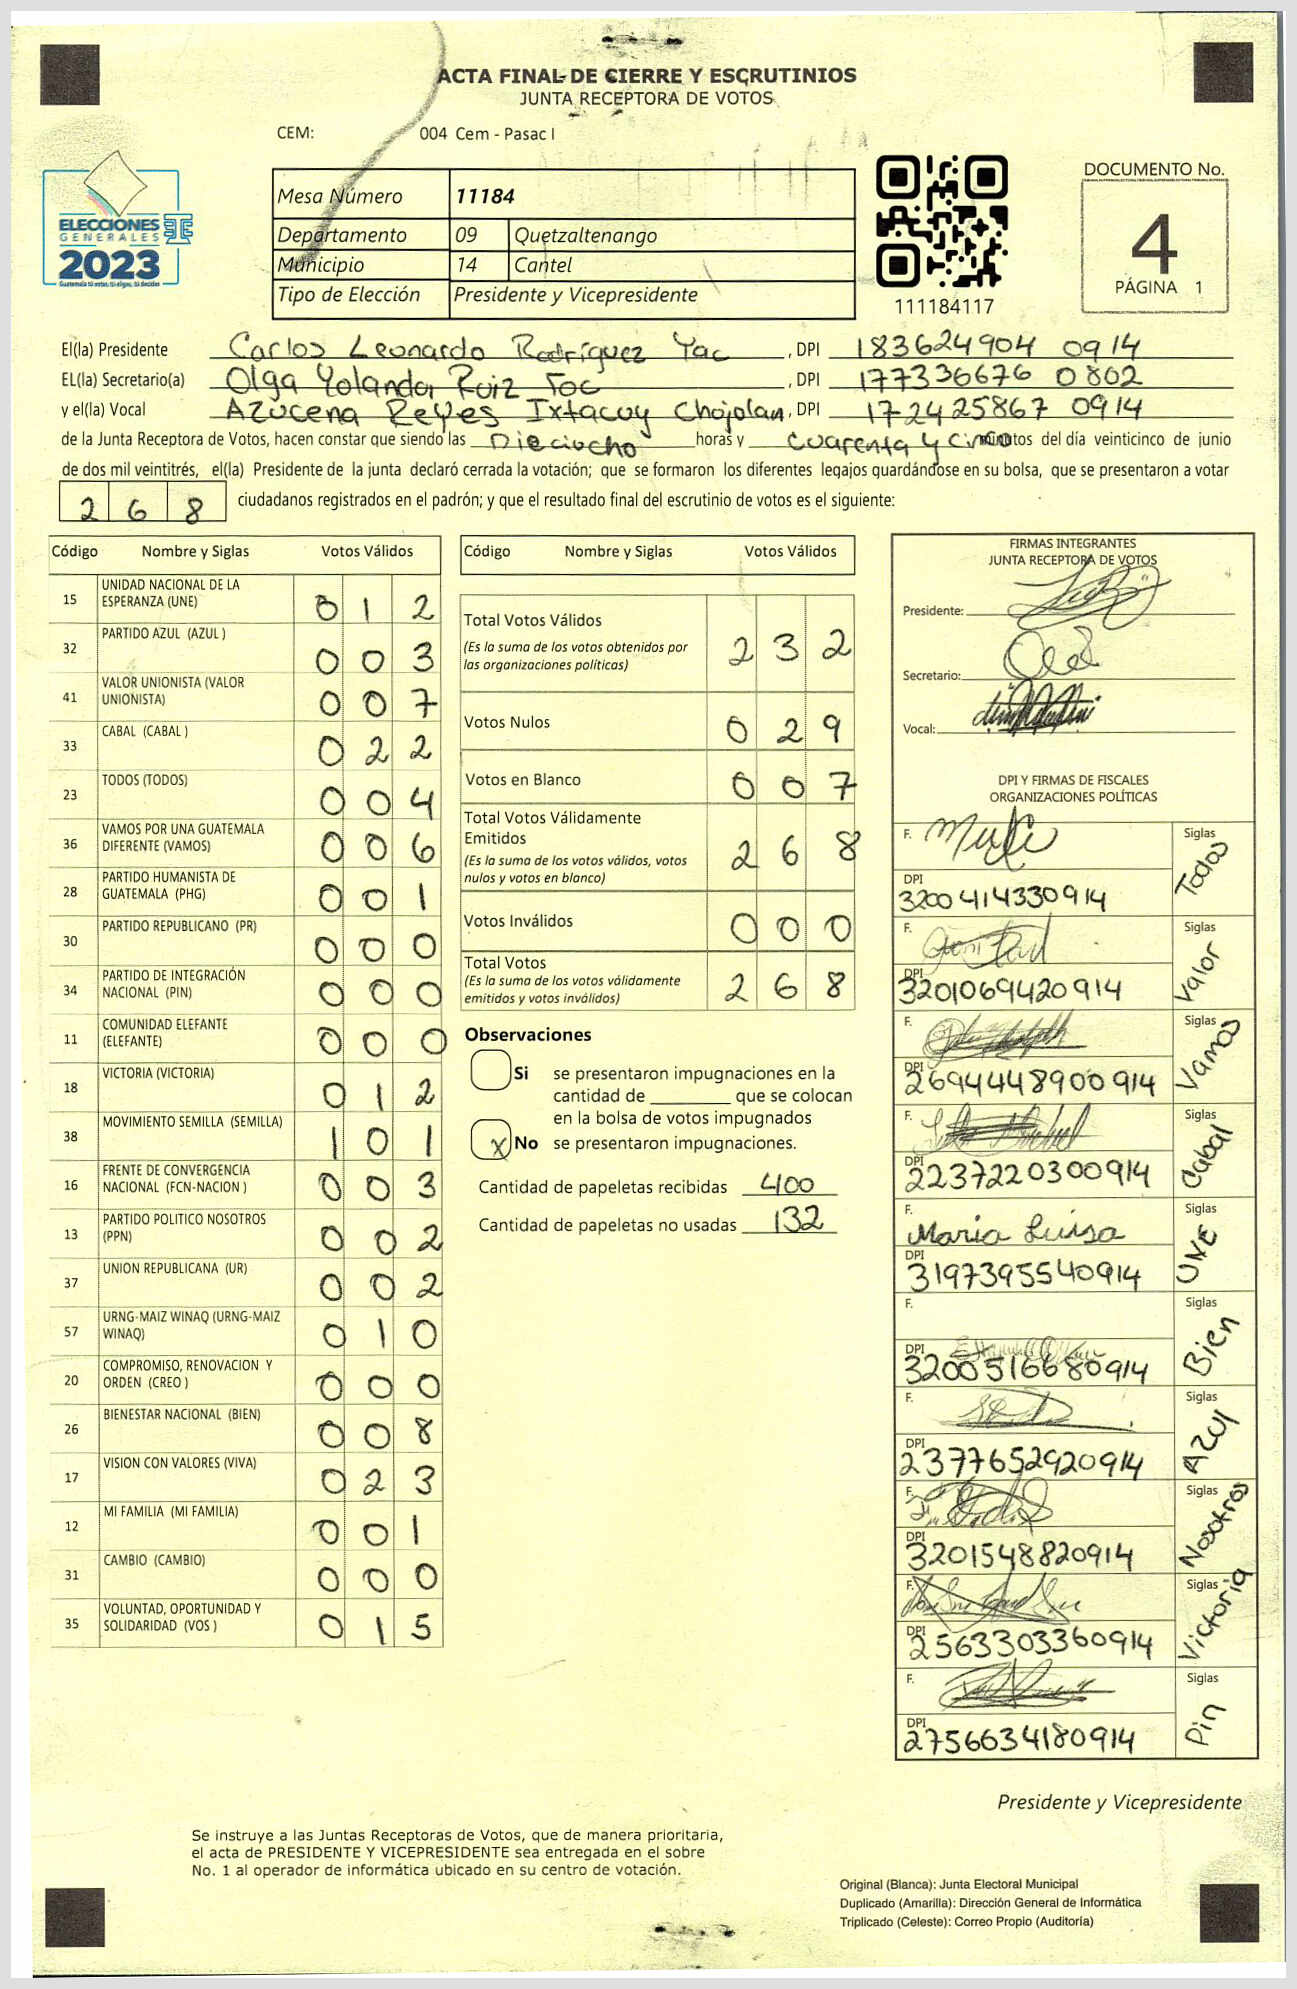 ACTA FINAL DE CIERRE Y ESCRUTINIOS
JUNTA RECEPTORA DE VOTOS
CEM: 004 Cem - Pasac I
ELECCIONES
GENERALES
2023
Guatemala tú votas, tú eliges, tú decides
Mesa Número 11184
Departamento 09 Quetzaltenango
Municipio 14 Cantel
Tipo de Elección Presidente y Vicepresidente
111184117
DOCUMENTO No.
4
PÁGINA 1
El(la) Presidente Carlos Leonardo Rodríguez Yac, DPI 183624904 0914
EL(la) Secretario(a) Olga Yolanda Ruiz Toc, DPI 177336676 0802
y el(la) Vocal Azucena Reyes Ixtacuy Chojolan, DPI 172425867 0914
de la Junta Receptora de Votos, hacen constar que siendo las Dieciocho horas y cuarenta y cinco minutos del día veinticinco de junio
de dos mil veintitrés, el(la) Presidente de la junta declaró cerrada la votación; que se formaron los diferentes legajos guardándose en su bolsa, que se presentaron a votar
268 ciudadanos registrados en el padrón; y que el resultado final del escrutinio de votos es el siguiente:
Código Nombre y Siglas Votos Válidos
15 UNIDAD NACIONAL DE LA
ESPERANZA (UNE) 0 1 2
32 PARTIDO AZUL (AZUL ) 0 0 3
41 VALOR UNIONISTA (VALOR
UNIONISTA) 0 0 7
33 CABAL (CABAL ) 0 2 2
23 TODOS (TODOS) 0 0 4
36 VAMOS POR UNA GUATEMALA
DIFERENTE (VAMOS) 0 0 6
28 PARTIDO HUMANISTA DE
GUATEMALA (PHG) 0 0 1
30 PARTIDO REPUBLICANO (PR) 0 0 0
34 PARTIDO DE INTEGRACIÓN
NACIONAL (PIN) 0 0 0
11 COMUNIDAD ELEFANTE
(ELEFANTE) 0 0 0
18 VICTORIA (VICTORIA) 0 1 2
38 MOVIMIENTO SEMILLA (SEMILLA) 1 0 1
16 FRENTE DE CONVERGENCIA
NACIONAL (FCN-NACION ) 0 0 3
13 PARTIDO POLITICO NOSOTROS
(PPN) 0 0 2
37 UNION REPUBLICANA (UR) 0 0 2
57 URNG-MAIZ WINAQ (URNG-MAIZ
WINAQ) 0 1 0
20 COMPROMISO, RENOVACION Y
ORDEN (CREO ) 0 0 0
26 BIENESTAR NACIONAL (BIEN) 0 0 8
17 VISION CON VALORES (VIVA) 0 2 3
12 MI FAMILIA (MI FAMILIA) 0 0 1
31 CAMBIO (CAMBIO) 0 0 0
35 VOLUNTAD, OPORTUNIDAD Y
SOLIDARIDAD (VOS ) 0 1 5
Código Nombre y Siglas Votos Válidos
Total Votos Válidos
(Es la suma de los votos obtenidos por
las organizaciones politicas) 2 3 2
Votos Nulos 0 2 9
Votos en Blanco 0 0 7
Total Votos Válidamente
Emitidos
(Es la suma de los votos válidos, votos
nulos y votos en blanco) 2 6 8
Votos Inválidos 0 0 0
Total Votos
(Es la suma de los votos válidamente
emitidos y votos inválidos) 2 6 8
Observaciones
Si se presentaron impugnaciones en la
cantidad de ________ que se colocan
en la bolsa de votos impugnados
X No se presentaron impugnaciones.
Cantidad de papeletas recibidas 400
Cantidad de papeletas no usadas 132
FIRMAS INTEGRANTES
JUNTA RECEPTORA DE VOTOS
Presidente:
Secretario:
Vocal:
DPI Y FIRMAS DE FISCALES
ORGANIZACIONES POLÍTICAS
F. Siglas Todos
DPI 3200414330914
F. Siglas Valor
DPI 3201069420914
F. Siglas Vamos
DPI 2694448900914
F. Siglas Cabal
DPI 2237220300914
F. Maria Luisa Siglas UNE
DPI 3197395540914
F. Siglas Bien
DPI 3200516680914
F. Siglas AZUL
DPI 2377652920914
F. Siglas Nosotros
DPI 3201548820914
F. Siglas Victoria
DPI 2563303360914
F. Siglas Pin
DPI 2756634180914
Presidente y Vicepresidente
Se instruye a las Juntas Receptoras de Votos, que de manera prioritaria,
el acta de PRESIDENTE Y VICEPRESIDENTE sea entregada en el sobre
No. 1 al operador de informática ubicado en su centro de votación.
Original (Blanca): Junta Electoral Municipal
Duplicado (Amarilla): Dirección General de Informática
Triplicado (Celeste): Correo Propio (Auditoría)